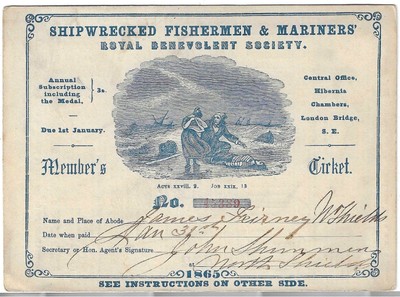 SHIPWRECKED FISHERMEN & MARINERS'
ROYAL BENEVOLENT SOCIETY.
Annual
Subscription
including
the Medal,
3s.
Due 1st January.
Central Office,
Hibernia
Chambers,
London Bridge,
S. E.
Member's
Ticket.
ACTS xxviii, 2. JOB xxix, 13
No.
Name and Place of Abode James Nº Shields
Date when paid Jan
Secretary or Hon. Agent's Signature John
at North Shields
1865
SEE INSTRUCTIONS ON OTHER SIDE.